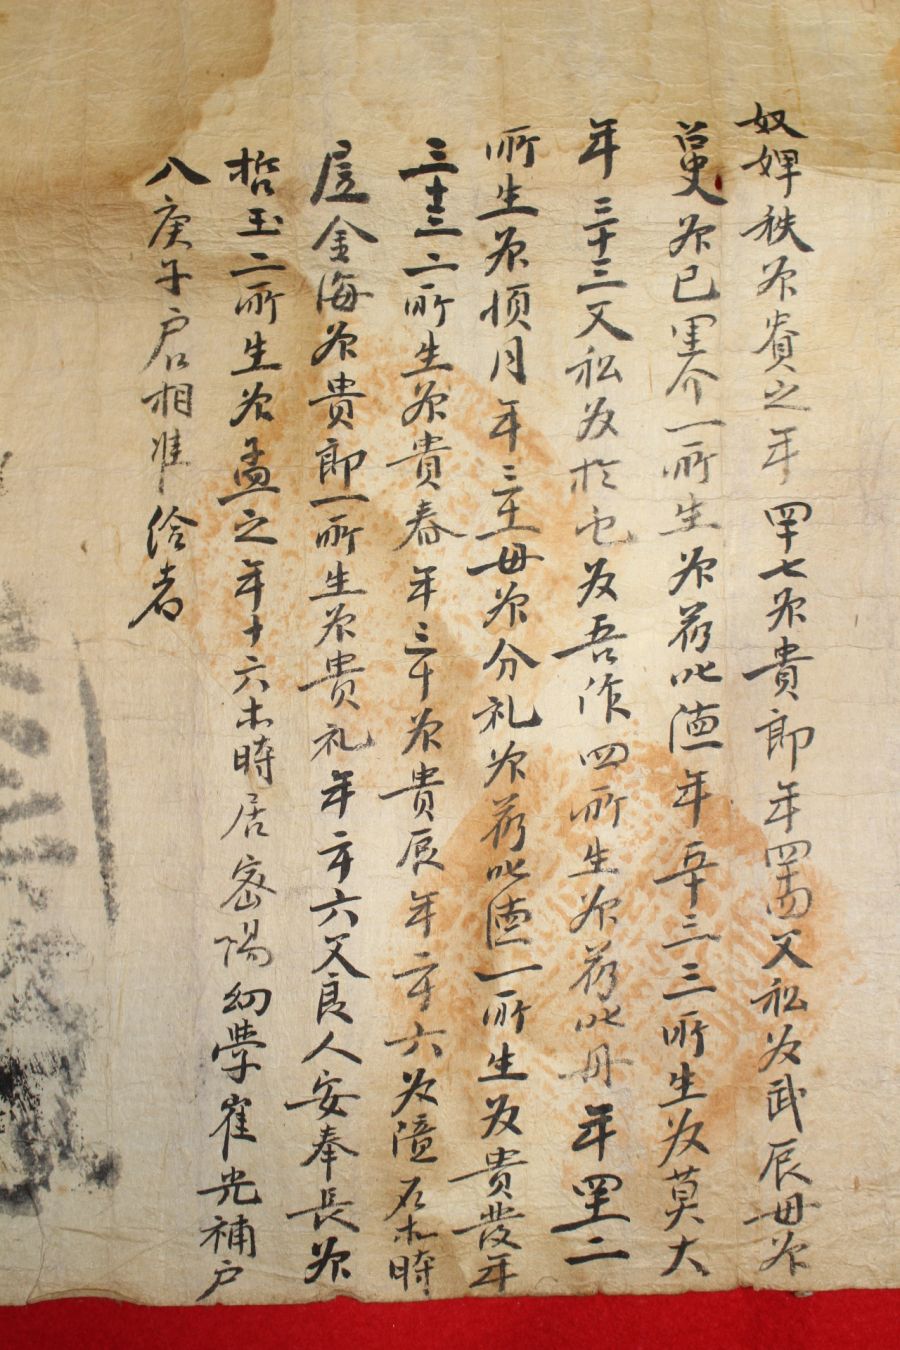 奴婢秩 婢 之年四十七婢貴郎年四十四父私奴武辰母婢
 婢已里介一所生婢 叱德年五十三三所生奴莫大
年三十三父私奴 奴吾作四所生婢 叱丹年四十二
所生婢順月年三十 母婢分礼婢 叱德一所生奴貴發年
三十三二所生婢貴春年三十婢貴辰年二十六奴 石 時
居金海婢貴郎一所生婢貴礼年二十六父良人安奉長婢
哲玉二所生婢孟之年十六 時居密陽幼學崔光補戶
八庚子戶口相准給者